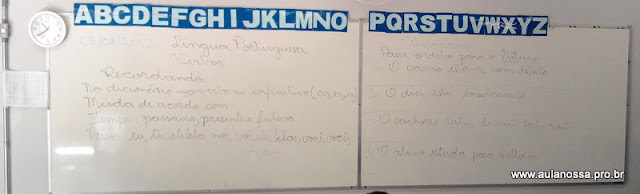 ABCDEFGHIJKLMNO
PQRSTUVWXYZ
Língua Portuguesa
Verbos
Recordando:
No dicionário → o verbo no infinitivo (ar, er, ir)
Muda de acordo com:
Tempo: passado, presente e futuro
eu, tu, ele/ela, nós, vós, eles/elas, você, vocês
Passe o verbo para o futuro
O carro com defeito
O dia está ensolarado
O cachorro durante toda noite
O aluno estuda para
www.aulanossa.pro.br